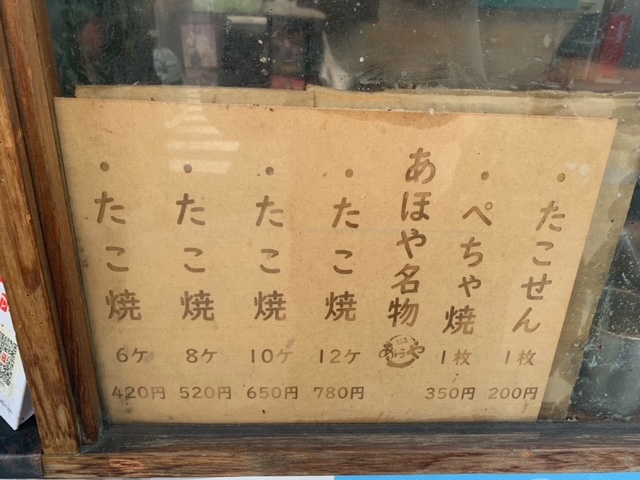 ・たこせん 1枚 200円
・ぺちゃ焼 1枚 350円
あほや名物 あほや
・たこ焼 12ケ 780円
・たこ焼 10ケ 650円
・たこ焼 8ケ 520円
・たこ焼 6ケ 420円